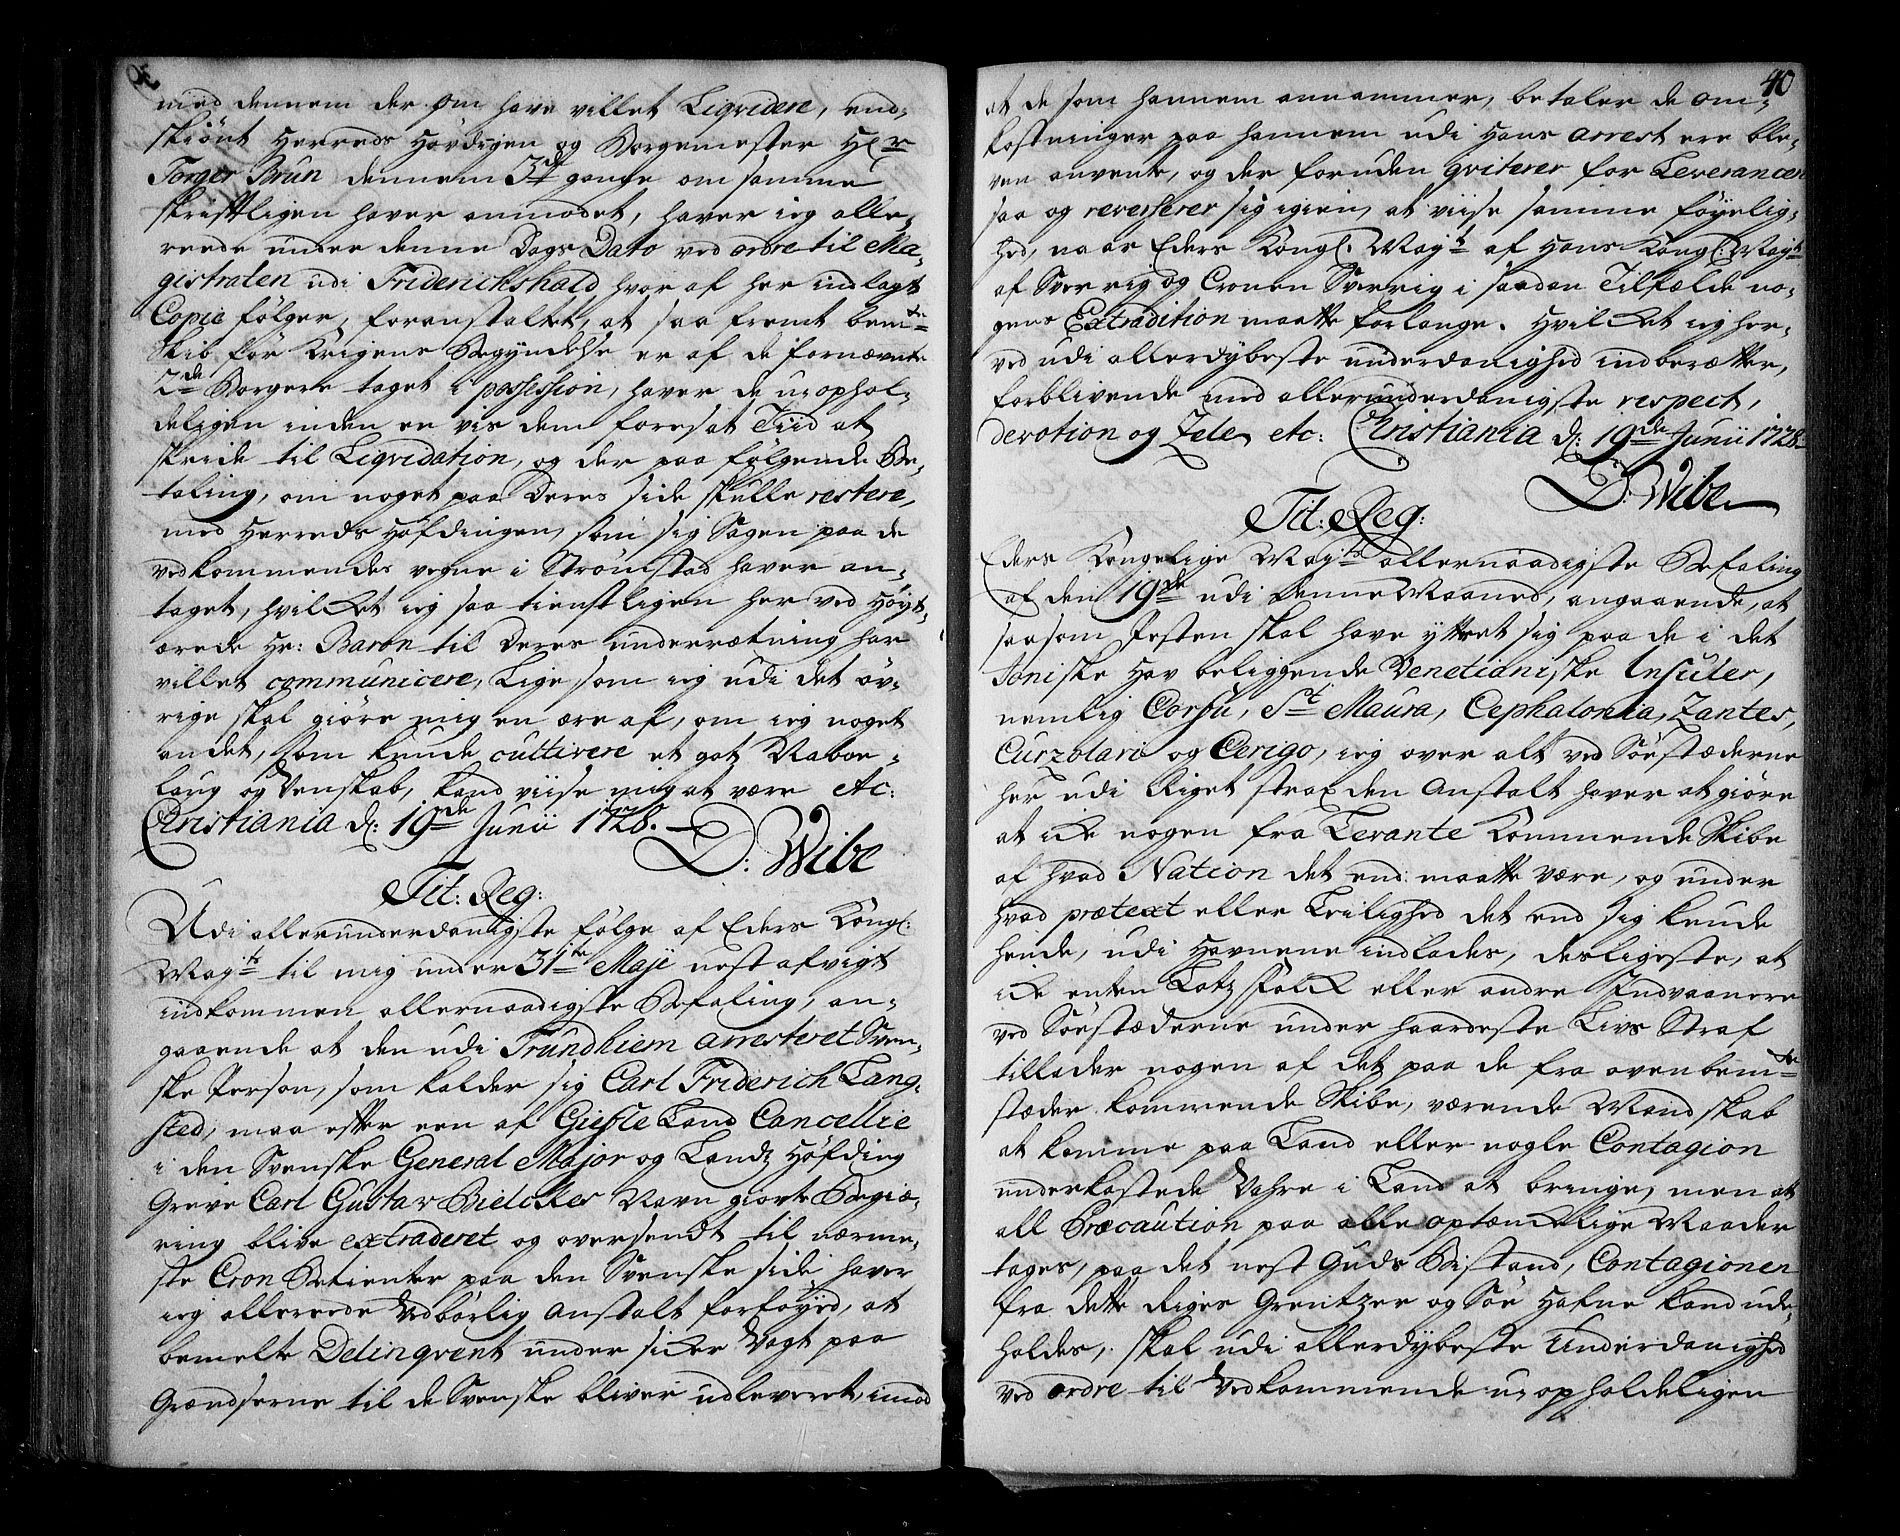 med dennem der om have villet Liqvidere, end-
skiønt Herreds Høvdigen og Borgemester Hr
Torger Brun dennem 3de gange om samme
skriftligen haver anmodet, haver ieg alle-
reede under denne Dags Dato ved ordre til Ma-
gistraten udi Friderichshald hvor af her indlagt
Copie følger, foranstaltet, at saa fremt bemte
Skib for Krigens Begyndelse er af de fornævnte
2de Borgere taget i possession, haver de uophol-
deligen inden en vis dem foresat Tiid at
skride til Liqvidation, og der paa følgende Be-
taling, om noget paa Deres side skulle restere,
med Herreds Høfdingen, som sig Sagen paa de
vedkommendes vegne i Strømstad haver an-
taget, hvilcket ieg saa tienstligen her ved Høyt-
ærede Hr: Baron til Deres underrætning har
villet communicere, Lige som ieg udi det øv-
rige skal giøre mig en ære af, om ieg noget
andet, som kunde cultivere et got Naboe-
laug og Venskab, kand viise mig at være etc:
Christiania d: 19de Junii 1728.
D: Wibe
Tit: Reg:
Udi allerunderdanigste følge af Eders Kongl:
Mayts til mig under 31te Maji nest afvigt
indkommen allernaadigste Befaling, an-
gaaende at den udi Trundhiem arresteret Sven-
ske Person, som kalder sig Carl Friderich Lang-
sted, maa efter een af Giefle Land Cancellie
i den Svenske General Major og Landz Høfding
Greve Carl Gustav Bielckes Navn giorte Begiæ-
ring blive extraderet og oversendt til nærme-
ste Cron Betienter paa den Svenske side, haver
ieg allereede Vedbørlig Anstalt forføyed, at
bemelte Delinqvent under sicker Vagt paa
Grændserne til de Svenske bliver udleveret, imod
40
at de som hannem annammer, betaler de om-
kostninger paa hannem udi Hans arrest ere ble-
ven anvente, og der foruden qviterer for Leverancen
saa og reverserer sig igien, at viise samme føyelig-
hed, naar Eders Kongl: Mayt af Hans Kongl: Mayt
af Sverrig og Cronen Sverrig i saadan Tilfælde no-
gens Extradition maatte forlange. Hvilcket ieg her-
ved udi allerdybeste underdanighed indberætter,
forblivende med allerunderdanigste respect,
devotion og Zele etc: Christiania d: 19de Junii 1728.
D: Wibe
Tit: Reg:
Eders Kongelige Mayts allernaadigste Befaling
af den 19de udi denne Maaned, angaaende, at
saasom Pesten skal have yttret sig paa de i det
Joniske Hav beliggende Venetianiske Insuler,
nemlig Corfu, St Maura, Cephalonia, Zantes,
Curzolari og Cerigo, ieg over alt ved Søestæderne
her udi Riget strax den Anstalt haver at giøre
at icke nogen fra Levante Kommende Skibe
af hvad Nation det end maatte være, og under
hvad prætext eller Leilighed det end sig kunde
hende, udi Havnene indlades, desligeste, at
icke enten Lotz folck eller andre Indvaanere
ved Søestæderne under haardeste Livs Straf
tillader nogen af det paa de fra ovenbemte
stæder kommende Skibe, værende Mandskab
at komme paa Land eller nogle Contagion
underkastede Vahre i Land at bringe, men at
all Præcaution paa alle optænckelige Maader
tages, paa det nest Guds Bistand, Contagionen
fra dette Riges Grentzer og Søe Hafne kand ude-
holdes, skal udi allerdybeste Underdanighed
ved ordre til Vedkommende uopholdeligen